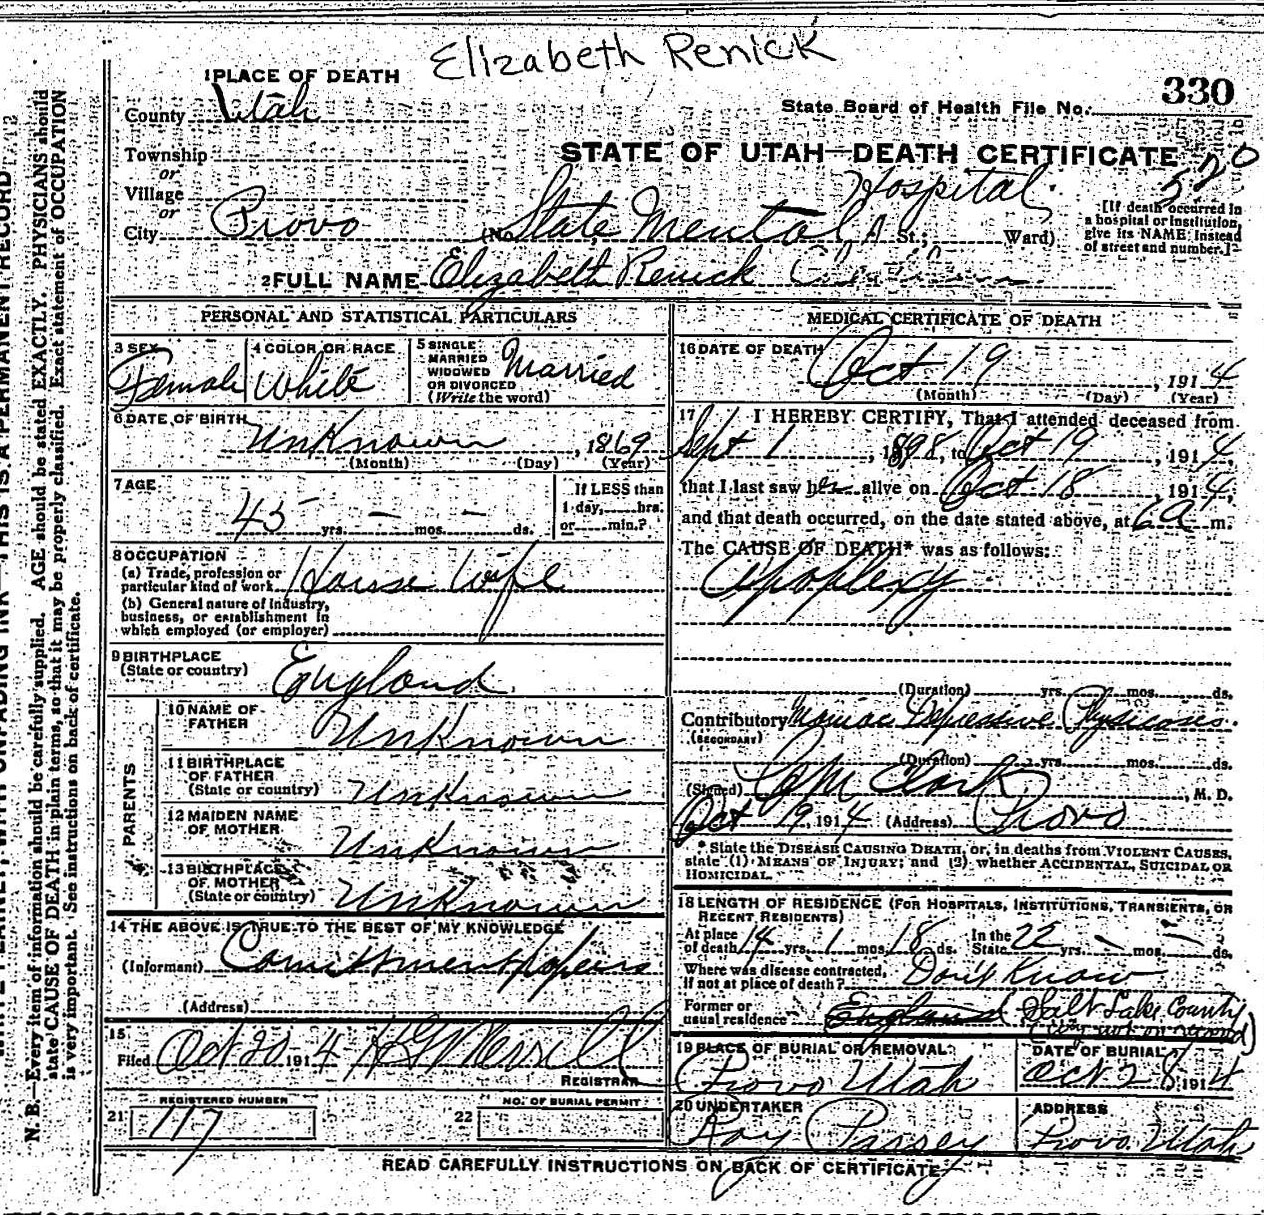 Elizabeth Renick
1 PLACE OF DEATH
County Utah
State Board of Health File No. 330
Township
or
STATE OF UTAH—DEATH CERTIFICATE 520
Village
or
City Provo (No. State Mental Hospital St.; Ward)
[If death occurred in a hospital or institution, give its NAME instead of street and number.]
2 FULL NAME Elizabeth Renick
PERSONAL AND STATISTICAL PARTICULARS
3 SEX Female
4 COLOR OR RACE White
5 SINGLE MARRIED WIDOWED OR DIVORCED (Write the word) Married
6 DATE OF BIRTH Unknown, 1869
(Month) (Day) (Year)
7 AGE
45 yrs. - mos. - ds.
If LESS than 1 day, hrs. or min.?
8 OCCUPATION
(a) Trade, profession or particular kind of work House Wife
(b) General nature of Industry, business, or establishment in which employed (or employer)
9 BIRTHPLACE (State or country) England
PARENTS
10 NAME OF FATHER Unknown
11 BIRTHPLACE OF FATHER (State or country) Unknown
12 MAIDEN NAME OF MOTHER Unknown
13 BIRTHPLACE OF MOTHER (State or country) Unknown
14 THE ABOVE IS TRUE TO THE BEST OF MY KNOWLEDGE
(Informant) Comittment papers
(Address)
15
Filed Oct 20 1914 H G Merrill
REGISTRAR
REGISTERED NUMBER
21 117
NO. OF BURIAL PERMIT
22
MEDICAL CERTIFICATE OF DEATH
16 DATE OF DEATH
Oct 19, 1914
(Month) (Day) (Year)
17 I HEREBY CERTIFY, That I attended deceased from
Sept 1, 1898, to Oct 19, 1914,
that I last saw her alive on Oct 18, 1914,
and that death occurred, on the date stated above, at 6 a m.
The CAUSE OF DEATH* was as follows:
Apoplexy
(Duration) yrs. mos. ds.
Contributory Maniac Depressive Physicoses.
(SECONDARY)
(Duration) yrs. mos. ds.
(Signed) Clark, M. D.
Oct 19, 1914 (Address) Provo
* State the DISEASE CAUSING DEATH, or, in deaths from VIOLENT CAUSES, state (1) MEANS OF INJURY; and (2) whether ACCIDENTAL, SUICIDAL OR HOMICIDAL.
18 LENGTH OF RESIDENCE (FOR HOSPITALS, INSTITUTIONS, TRANSIENTS, OR RECENT RESIDENTS)
At place of death 14 yrs. 1 mos. 18 ds. In the State 22 yrs. - mos. - ds.
Where was disease contracted, if not at place of death? Don't Know
Former or usual residence England Salt Lake County
(City not on record)
19 PLACE OF BURIAL OR REMOVAL Provo Utah
DATE OF BURIAL Oct 28 1914
20 UNDERTAKER Roy Passey
ADDRESS Provo Utah
READ CAREFULLY INSTRUCTIONS ON BACK OF CERTIFICATE
N. B.—Every item of information should be carefully supplied. AGE should be stated EXACTLY. PHYSICIANS should
state CAUSE OF DEATH in plain terms, so that it may be properly classified. Exact statement of OCCUPATION
is very important. See instructions on back of certificate.